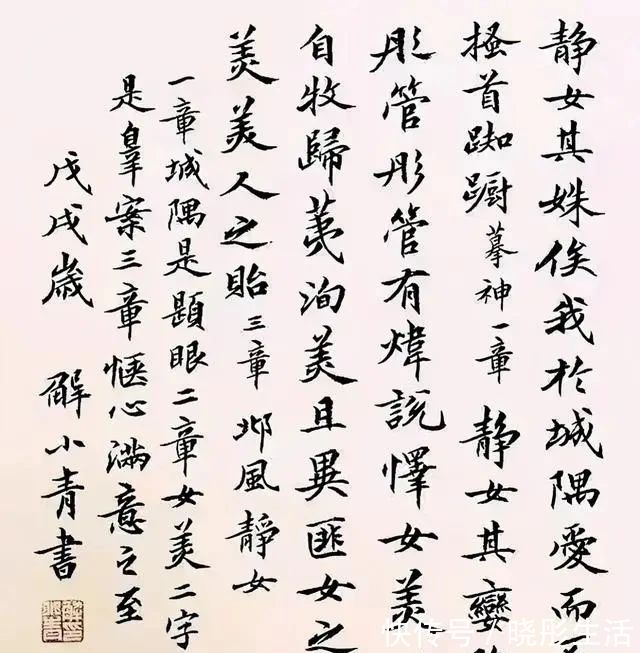 静女其姝俟我於城隅愛而
搔首踟蹰摹神一章静女其孌
彤管彤管有煒説懌女美
自牧歸荑洵美且異匪女之
美美人之貽三章邶風静女
一章城隅是題眼二章女美二字
是辠案三章愜心满意之至
戊戌歲 解小青書
快传号/晓彤生活